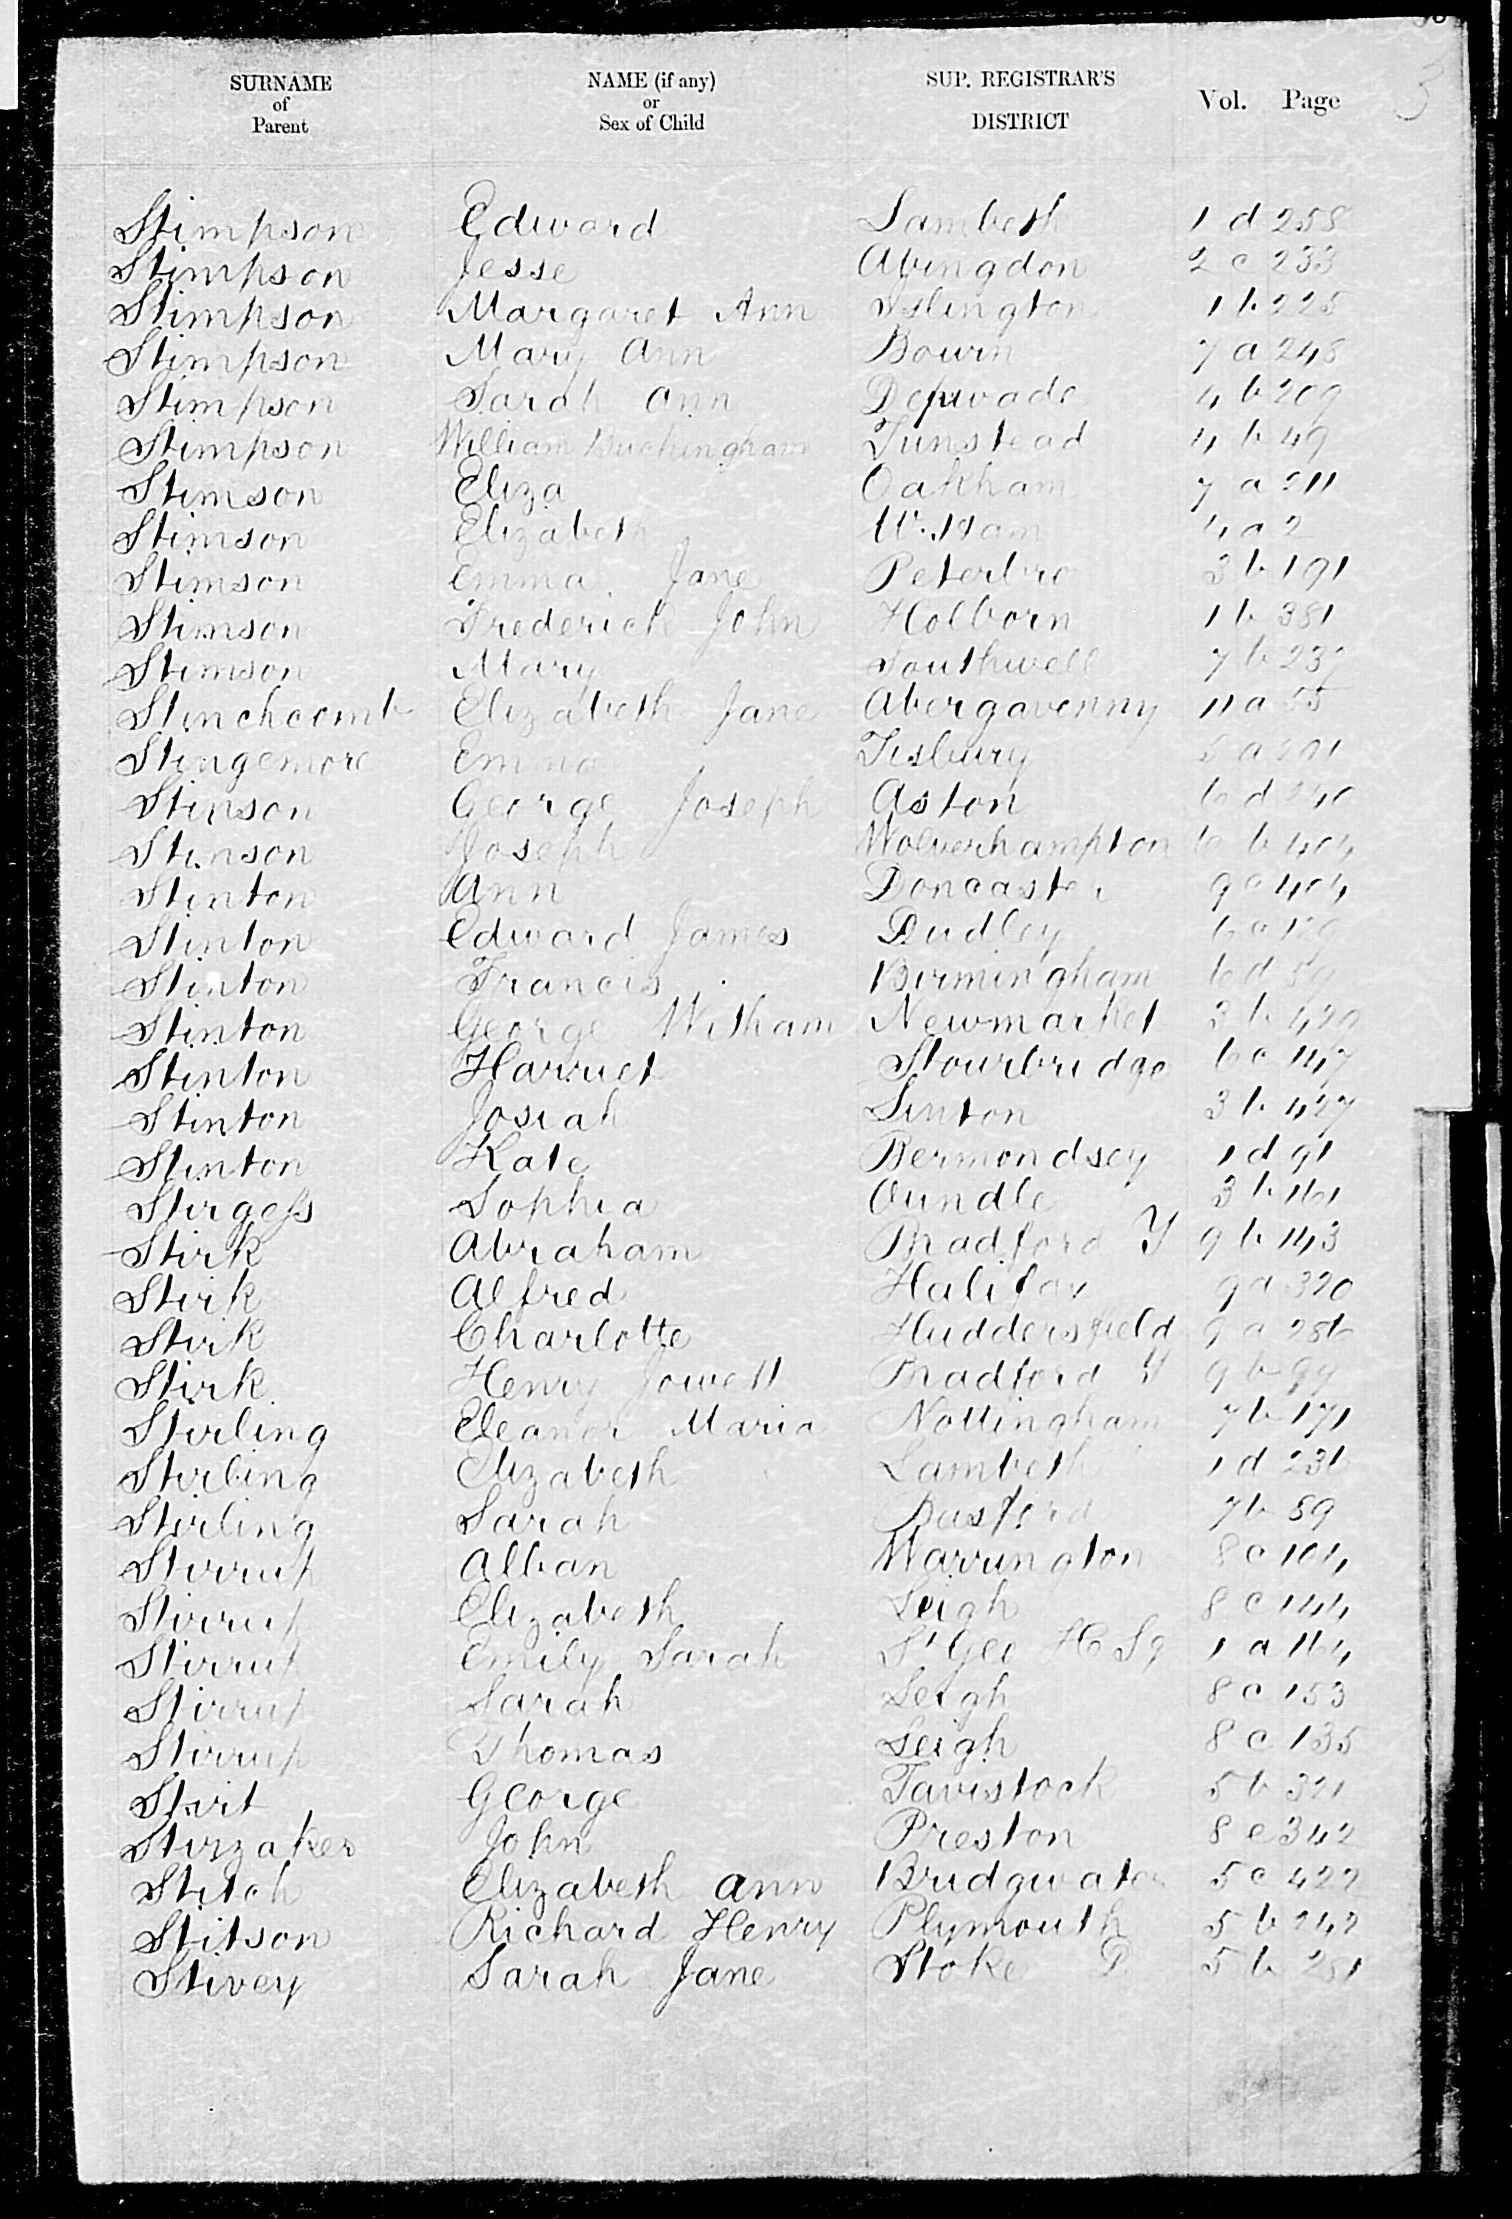 SURNAME of Parent NAME (if any) or Sex of Child SUP. REGISTRAR'S DISTRICT Vol. Page
Stimpson Edward Lambeth 1 d 258
Stimpson Jesse Abingdon 2 c 233
Stimpson Margaret Ann Islington 1 b 225
Stimpson Mary Ann Bourn 7 a 248
Stimpson Sarah Ann Depwade 4 b 209
Stimpson William Buckingham Tunstead 4 b 49
Stimson Eliza Oakham 7 a 211
Stimson Elizabeth W. Ham 4 a 2
Stimson Emma Jane Peterbro 3 b 191
Stimson Frederick John Holborn 1 b 381
Stimson Mary Southwell 7 b
Stinchcomb Elizabeth Jane Abergavenny 11 a 55
Stingemore Emma Tisbury 5 a
Stinson George Joseph Aston 6 d 240
Stinson Joseph Wolverhampton 6 b 404
Stinton Ann Doncaster 9 c 404
Stinton Edward James Dudley 6 c
Stinton Francis Birmingham 6 d 59
Stinton George Witham Newmarket 3 b 429
Stinton Harriet Stourbridge 6 c 147
Stinton Josiah Linton 3 b 427
Stinton Kate Bermondsey 1 d 91
Stirgess Sophia Oundle 3 b 161
Stirk Abraham Bradford Y 9 b 143
Stirk Alfred Halifax 9 a 320
Stirk Charlotte Huddersfield 9 a 256
Stirk Henry Jowett Bradford Y 9 b 99
Stirling Eleanor Maria Nottingham 7 b 171
Stirling Elizabeth Lambeth 1 d 236
Stirling Sarah Basford 7 b 59
Stirrup Alban Warrington 8 c 104
Stirrup Elizabeth Leigh 8 c 144
Stirrup Emily Sarah St Geo H Sq 1 a 164
Stirrup Sarah Leigh 8 c 153
Stirrup Thomas Leigh 8 c 135
Stirt George Tavistock 5 b 321
Stirzaker John Preston 8 e 342
Stitch Elizabeth Ann Bridgwater 5 c 422
Stitson Richard Henry Plymouth 5 b 242
Stivey Sarah Jane Stoke D 5 b 281